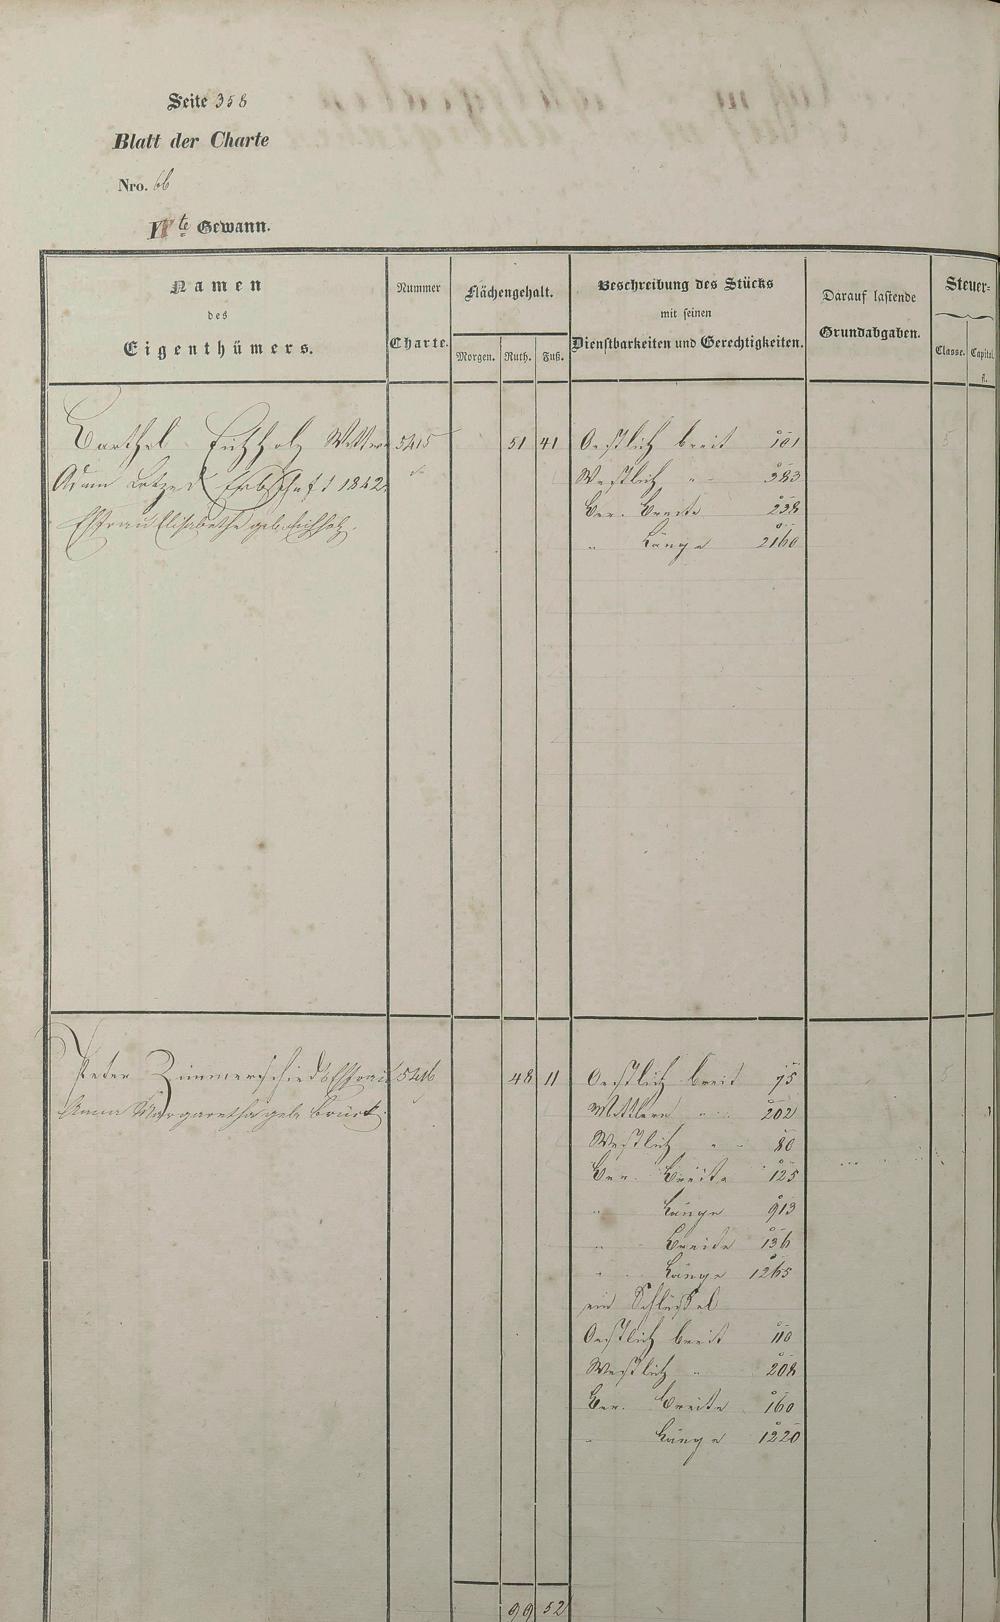 Seite 358
Blatt der Charte
Nro. 66
te Gewann.
Namen
des
Eigenthümers.
Nummer
Charte.
Flächengehalt.
Morgen. Ruth. Fuß.
Beschreibung des Stücks
mit seinen
Dienstbarkeiten und Gerechtigkeiten.
Darauf lastende
Grundabgaben.
Steuer-
Classe. Capital.
fl.
Barthel Eichholz Wittwe 5415 51 41 Oestlich breit 101 5
Adam Erbschaft 1842. Westlich " 383
Ehfrau Elisabetha geb. Eichholz. Ber. Breite 238
" Länge 2160
Peter Zimmerschieds Ehfrau 5416 48 11 Oestlich breit 75 5
Anna Margaretha geb. Mittlere " 202
Westlich " 80
Ber. Breite 125
" Länge 913
" Breite 136
" Länge 1265
ein Schlüssel
Oestlich breit 110
Westlich " 208
Ber. Breite 160
" Länge 1220
99 52